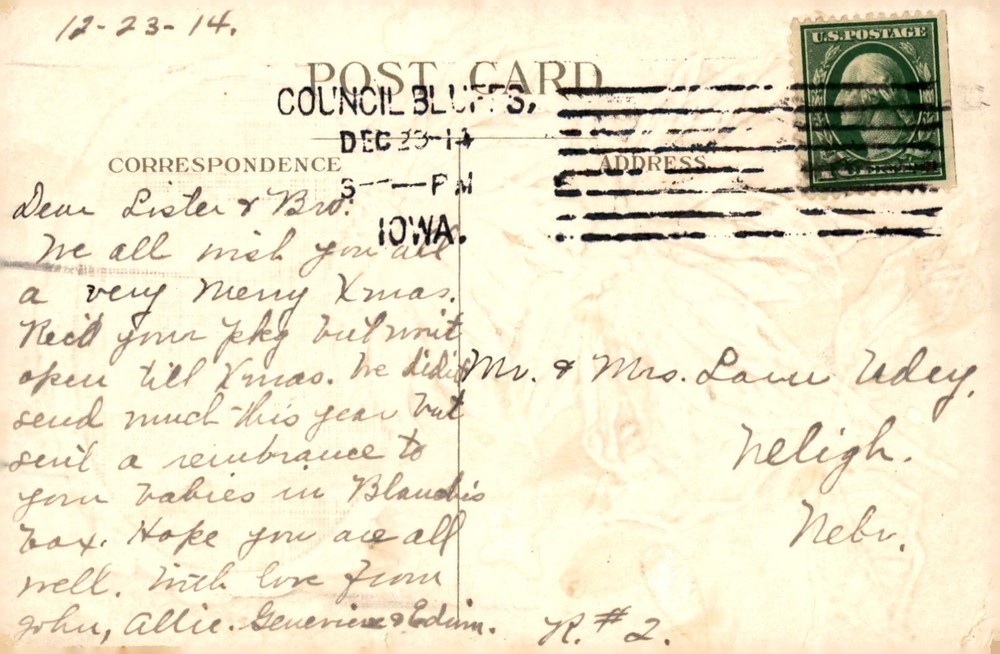 12-23-14.
U.S. POSTAGE
POST CARD
COUNCIL BLUFFS,
DEC 23-14
3 PM
IOWA.
CORRESPONDENCE
ADDRESS
Dear Sister & Bro.
We all wish you all
a very Merry Xmas.
Rec'd your pkg but won't
open till Xmas. We didn't
send much this year but
sent a rembrance to
your babies in
box. Hope you are all
well. With love from
John, Allie. Genevieve & Edwin.
Mr. & Mrs. Udey,
Neligh.
Nebr.
R. # 2.